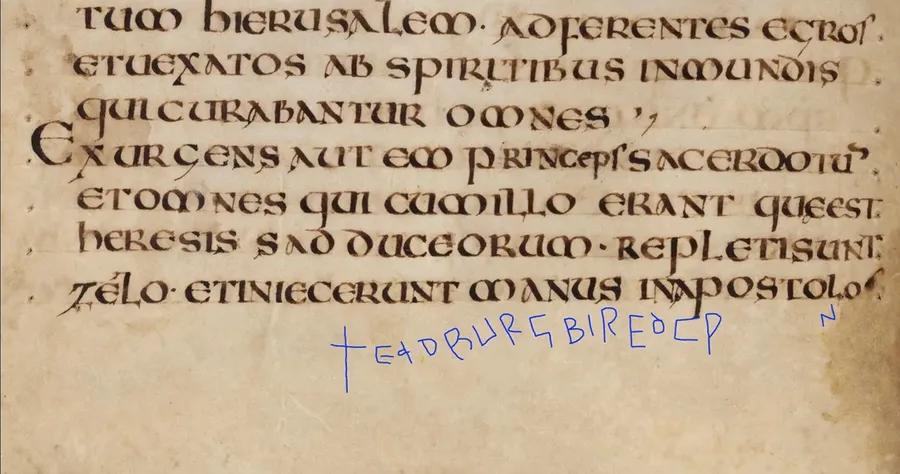 TUM HIERUSALEM · ADFERENTES EGROS ·
ETUEXATOS AB SPIRITIBUS INMUNDIS
QUICURABANTUR OMNES
EXURGENS AUTEM PRINCEPS SACERDOTŪ
ETOMNES QUI CUMILLO ERANT QUEEST
HERESIS SADDUCEORUM · REPLETISUNT
ZELO · ETINIECERUNT MANUS INAPOSTOLOS
+EADBURG BIREðCP N